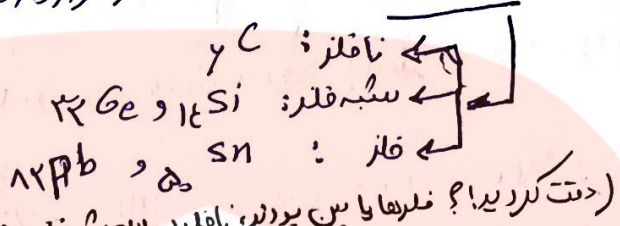 نافلز : ₆C
شبه فلز : ₁₄Si و ₃₂Ge
فلز : ₅₀Sn و ₈₂Pb
(دقت کردید!؟ فلزها پایین بودند، نافلز